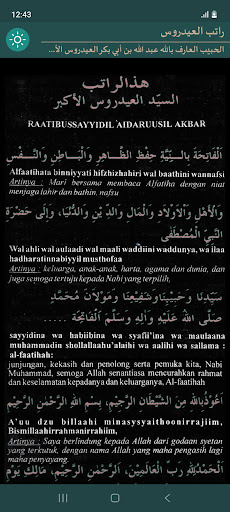 12:43
راتب العيدروس
الحبيب العارف بالله عبد الله بن أبي بكر العيدروس الأ...
هذا الراتب
السيّد العيدروس الأكبر
RAATIBUSSAYYIDIL 'AIDARUUSIL AKBAR
اَلْفَاتِحَةَ بِالنِّيَّةِ حِفْظِ الظَّاهِرِ وَالْبَاطِنِ وَالنَّفْسِ
Alfaatihata binniyyati hifzhizhahiri wal baathini wannafsi
Artinya : Mari bersama membaca Alfatiha dengan niat
menjaga lahir dan bathin, nafsu
وَالْأَهْلِ وَالْأَوْلَادِ وَالْمَالِ وَالدِّيْنِ وَالدُّنْيَا، وَإِلَى حَضْرَةِ
النَّبِيِّ الْمُصْطَفَى
Wal ahli wal aulaadi wal maali waddiini waddunya, wa ilaa
hadharatinnabiyyil musthofaa
Artinya : keluarga, anak-anak, harta, agama dan dunia, dan
juga semoga tertuju kepada Nabi yang terpilih,
سَيِّدِنَا وَحَبِيْبِنَا وَشَفِيْعِنَا وَمَوْلَانَا مُحَمَّدٍ
صَلَّى اللهُ عَلَيْهِ وَآلِهِ وَسَلَّمَ اَلْفَاتِحَةْ ...
sayyidina wa habiibina wa syafii'ina wa maulaana
muhammadin shollallaahu'alaihi wa aalihi wa sallama :
al-faatihah:
junjungan, kekasih dan penolong serta pemuka kita, Nabi
Muhammad, semoga Allah senantiasa mencurahkan rahmat
dan keselamatan kepadanya dan keluarganya, Al-faatihah
أَعُوْذُ بِاللهِ مِنَ الشَّيْطَانِ الرَّجِيْمِ، بِسْمِ اللهِ الرَّحْمٰنِ الرَّحِيْمِ
A'uu dzu billaahi minasysyaithoonirrajiim,
Bismillaahirrahmanirrahiim,
Artinya : Saya berlindung kepada Allah dari godaan syetan
yang terkutuk, dengan nama Allah yang maha pengasih lagi
maha penyayang.
اَلْحَمْدُ لِلّٰهِ رَبِّ الْعَالَمِيْنَ، اَلرَّحْمٰنِ الرَّحِيْمِ، مَالِكِ يَوْمِ